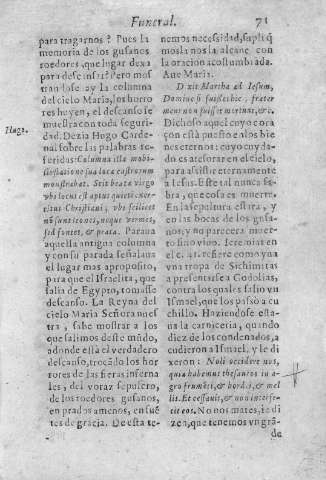 Funeral. 71
para tragarnos? Pues la
memoria de los gusanos
roedores, que lugar dexa
para descansar? Pero mos
trandose ay la columna
del cielo Maria, los horro
res huyen, el descanso se
muestra con toda seguri-
Hugo.
dad. Dezia Hugo Carde-
nal sobre las palabras re-
feridas: Columna illa mobi-
statione sua loca castrorum
monstrabat. Sit beata virgo
vbi locus est aptus quieti exer-
citus Christiani, vbi scilicet
non sunt vermes,
sed fontes, & prata. Paraua
aquella antigua columna
y con su parada señalaua
el lugar mas aproposito,
para que el Israelita, que
salia de Egypto, tomasse
descanso. La Reyna del
cielo Maria Señora nues
tra, sabe mostrar a los
que salimos deste mũdo,
adonde està el verdadero
descanso, trocãdo los hor
rores de las fieras inferna
les, del voraz sepulcro,
de los roedores gusanos,
en prados amenos, en fuẽ
tes de gracia. De esta te-
nemos necessidad, supliq̃
mosla nos la alcance con
la oracion acostumbrada.
Aue Maria.
Dixit Martha ad Iesum,
Domine si fuisses hic, frater
meus non fuisset mortuus, &c.
Dichoso aquel cuyo cora
çon està puesto en los bie
nes eternos: cuyo cuyda-
do es atesorar en el cielo,
para assistir eternamente
a Iesus. Este tal nunca sa-
bra, que cosa es muerte.
En la sepultura estara, y
en las bocas de los gusa-
nos, y no parecera muer-
to sino viuo. Ieremias en
el c. 41. refiere como yua
vna tropa de Sichimitas
a presentarse a Godolias,
contra los quales salio vn
Ismael, que los passò a cu
chillo. Haziendose esta-
ua la carniceria, quando
diez de los condenados, a
cudieron a Ismael, y le di
xeron: Noli occidere nos,
quia habemus thesauros in a-
gro frumenti, & hordei, & mel
lis. Et cessauit, & non interfe-
cit eos. No nos mates, le di
zen, que tenemos vn grã-
de